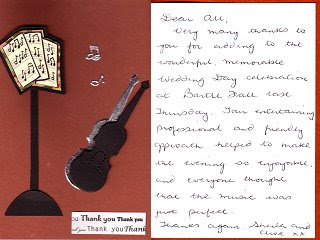 Thank you Thank you
Thank you Thank
Dear All,
Very many thanks to
you for adding to the
wonderful, memorable
Wedding Day celebration
at Hall last
Thursday. Your entertaining
professional and friendly
approach helped to make
the evening so enjoyable,
and everyone thought
that the music was
just perfect.
Thanks again Sheila and
Clive xx